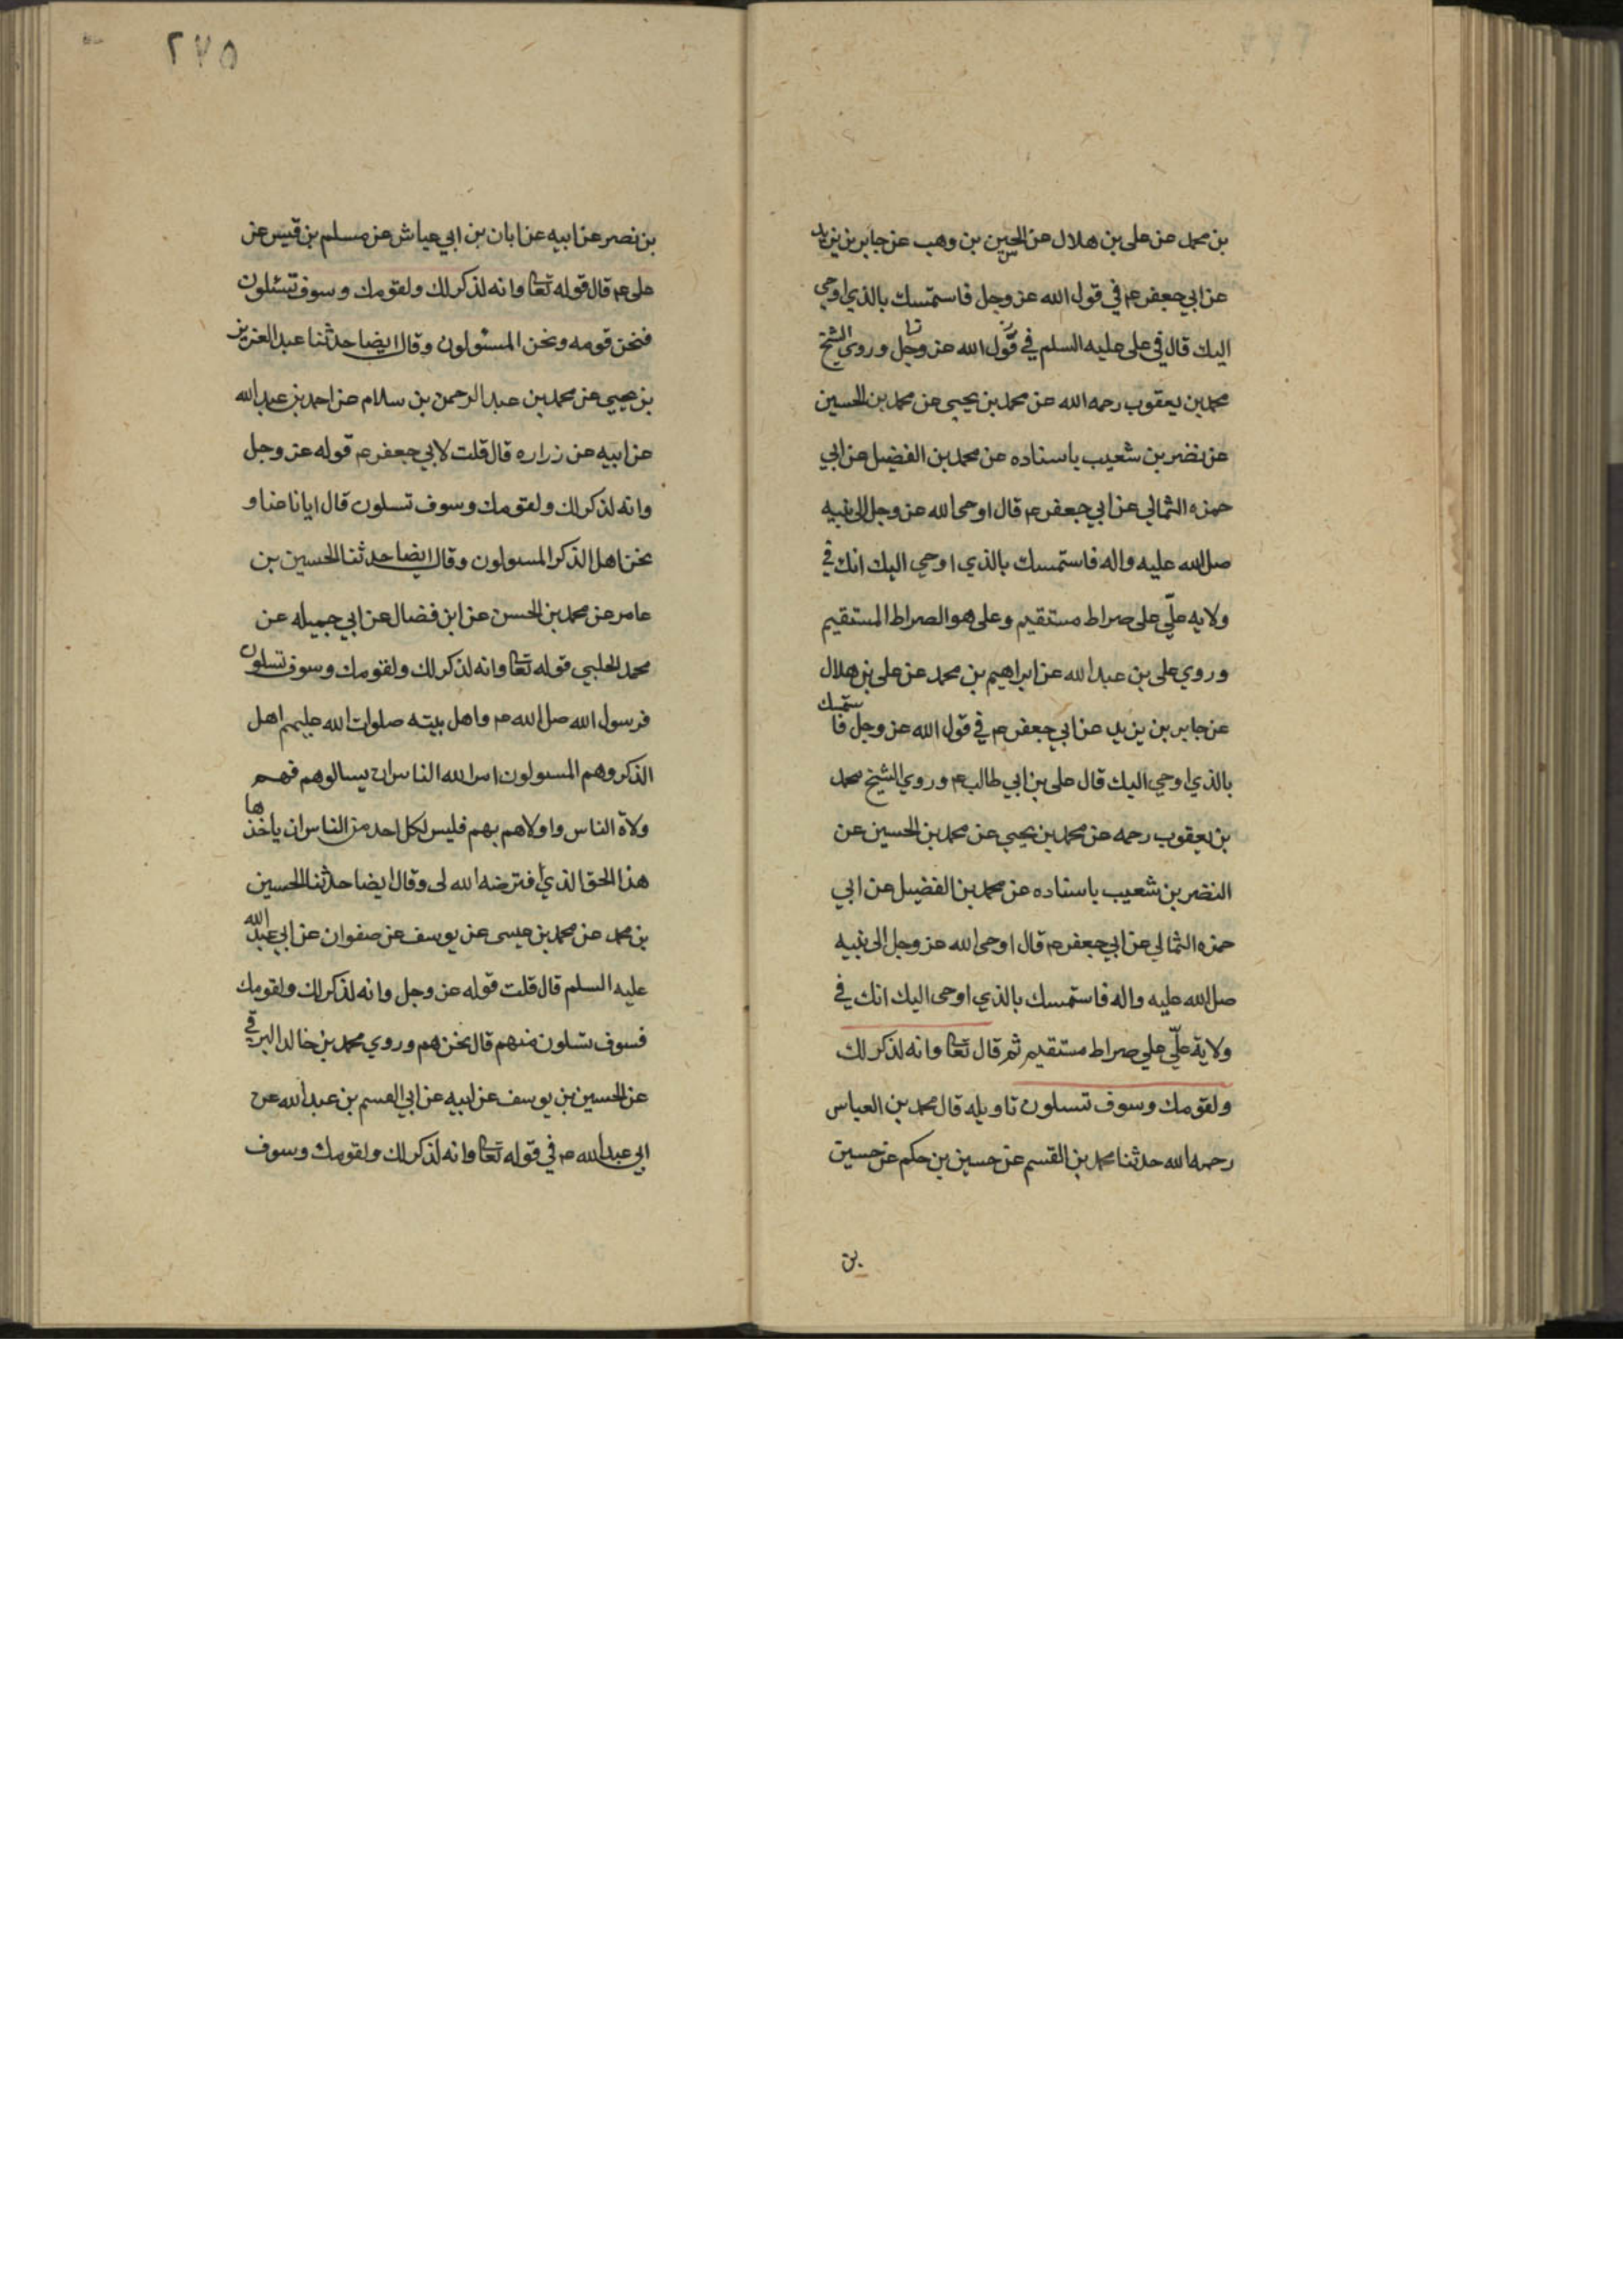 بن محمد عن على بن هلال عن الحسين بن وهب عن جابر بن يزيد
عن ابي جعفر ع في قول الله عز وجل فاستمسك بالذي اوحى
اليك قال في على عليه السلم في قول الله عز وجل وروى الشيخ
محمد بن يعقوب رحمه الله عن محمد بن يحيى عن محمد بن الحسين
عن نضر بن شعيب باسناده عن محمد بن الفضيل عن ابي
حمزه الثمالي عن ابي جعفر ع قال اوحى الله عز وجل الى نبيه
صلى الله عليه واله فاستمسك بالذي اوحي اليك انك في
ولايه علّي على صراط مستقيم وعلى هو الصراط المستقيم
وروي على بن عبد الله عن ابراهيم بن محمد عن على بن هلال
عن جابر بن يزيد عن ابي جعفر ع في قول الله عز وجل فاستمسك
بالذي اوحي اليك قال على بن ابي طالب ع وروي الشيخ محمد
بن يعقوب رحمه عن محمد بن يحيى عن محمد بن الحسين عن
النضر بن شعيب باسناده عن محمد بن الفضيل عن ابي
حمزه الثمالي عن ابي جعفر ع قال اوحى الله عز وجل الى نبيه
صلى الله عليه واله فاستمسك بالذي اوحى اليك انك في
ولاية علّي علي صراط مستقيم ثم قال تعا وانه لذكر لك
ولقومك وسوف تسلون تاويله قال محمد بن العباس
رحمه الله حدثنا محمد بن القسم عن حسين بن حكم عن حسين
بن
٢٧٥
بن نصر عن ابيه عن ابان بن ابي عياش عن مسلم بن قيس عن
على ع قال قوله تعا وانه لذكر لك ولقومك وسوف تسئلون
فنحن قومه ونحن المسئولون وقال ايضا حدثنا عبد العزيز
بن يحيى عن محمد بن عبد الرحمن بن سلام عن احمد بن عبد الله
عن ابيه عن زراره قال قلت لابي جعفر ع قوله عز وجل
وانه لذكر لك ولقومك وسوف تسلون قال ايانا عنا و
نحن اهل الذكر المسولون وقال ايضا حدثنا الحسين بن
عامر عن محمد بن الحسن عن ابن فضال عن ابي جميله عن
محمد الحلبي قوله تعا وانه لذكر لك ولقومك وسوف تسلون
فرسول الله صلى الله ع واهل بيته صلوات الله عليهم اهل
الذكر وهم المسولون امر الله الناس ان يسالوهم فهم
ولاة الناس واولاهم بهم فليس لكل احد من الناس ان ياخذها
هذا الحق الذي افترضه الله لى وقال ايضا حدثنا الحسين
بن محمد عن محمد بن عيسى عن يوسف عن صفوان عن ابي عبد الله
عليه السلم قال قلت قوله عز وجل وانه لذكر لك ولقومك
فسوف تسلون منهم قال نحن هم وروي محمد بن خالد البرقي
عن الحسين بن يوسف عن ابيه عن ابي القسم بن عبد الله عن
ابي عبد الله ع في قوله تعا وانه لذكر لك ولقومك وسوف